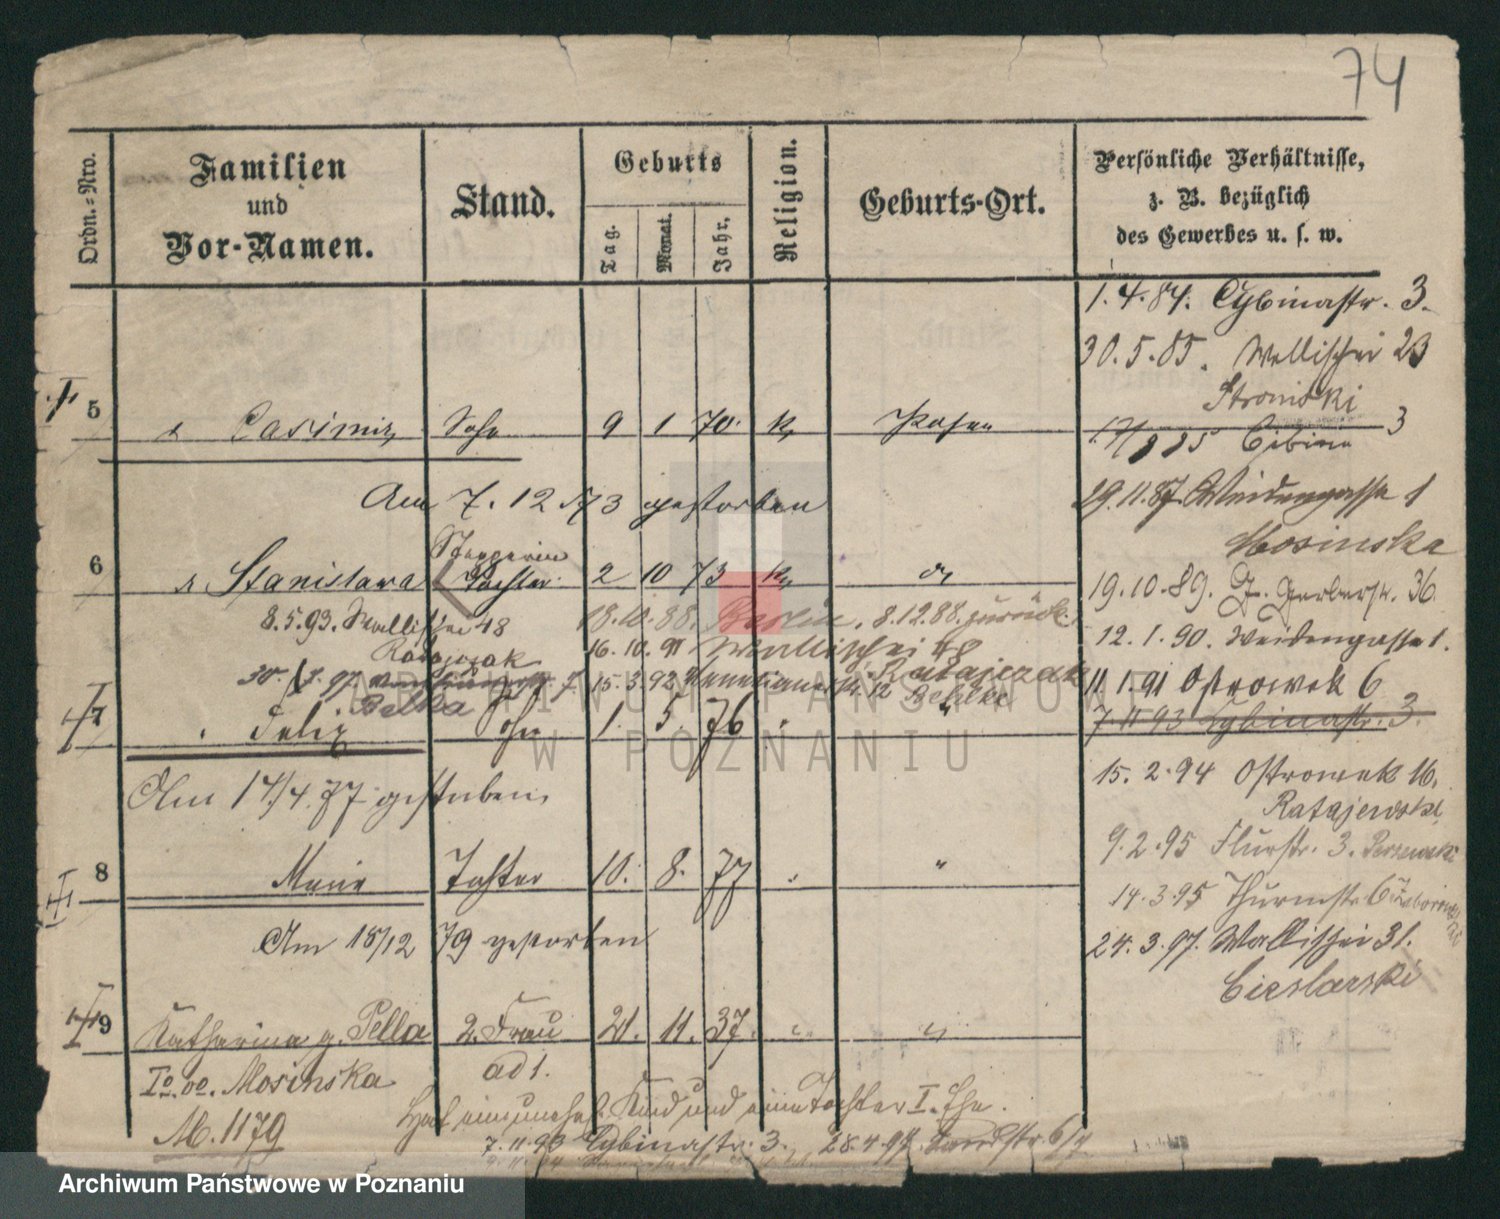 74
Ordn.-Nro.
Familien
und
Vor-Namen.
Stand.
Geburts
Tag.
Monat.
Jahr.
Religion.
Geburts-Ort.
Persönliche Verhältnisse,
z. B. bezüglich
des Gewerbes u. s. w.
1.4.84. Cybinastr. 3.
30.5.85. Wallischei 23
Stroniski
5 Casimir Sohn 9 1 70. k Posen
17/8 85 Cibina 3
Am 7. 12 73 gestorben
29.11.87 Weidengasse 1
Mosinska
6 Stanislawa Tochter 2 10 73 k
19.10.89. Gr. Gerberstr. 36.
8.5.93. Wallischei 48
18.10.88. Berlin. 8.12.88. zurück
12. 1. 90. Weidengasse 1.
Ratajczak
16. 10. 91 Wallischei 48
Ratajczak
15.3.92 Venetianerstr. 12
11.1.91 Ostrowek 6
7 Felix Sohn 1. 5. 76 "
7.11 93 Cybinastr. 3.
Am 14/4. 77 gestorben.
15. 2. 94 Ostrowek 16.
Ratajewski
8 Marie Tochter 10. 8. 77 "
9.2.95 Flurstr. 3.
14.3.95 Thurmstr. 6
Am 18/12 79 gestorben
24.3.97. Wallischei 31.
Cieslarski
9 Katharina g. Pella 2. Frau 21. 11. 37. "
ad 1.
Io. oo. Mosinska
Hat ein unehel. Kind und eine Tochter I. Ehe.
M. 1179
7.11.93 Cybinastr. 3. 28.4.97
ARCHIWUM PAŃSTWOWE
W POZNANIU
Archiwum Państwowe w Poznaniu